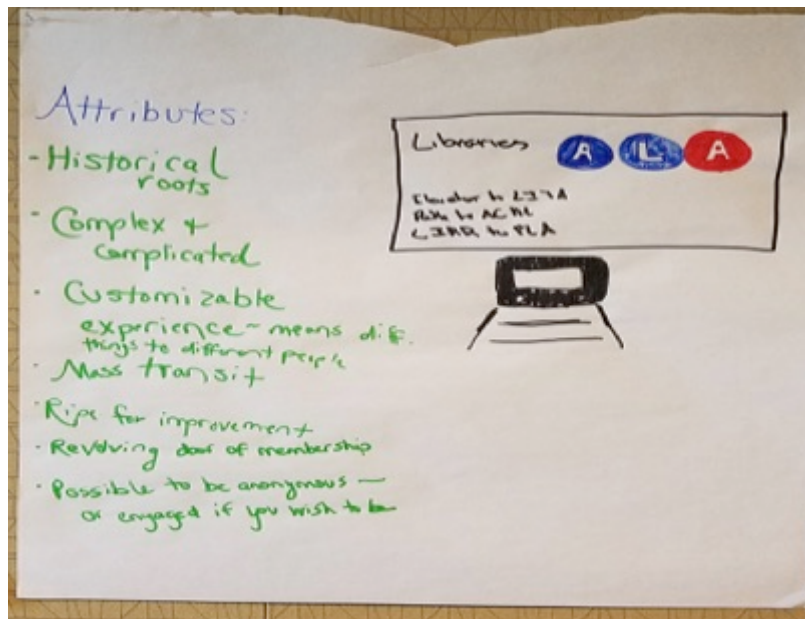 Attributes:
- Historical
roots
· Complex +
Complicated
· Customizable
experience - means diff.
things to different people
· Mass transit
· Ripe for improvement
· Revolving door of membership
· Possible to be anonymous —
or engaged if you wish to be
Libraries A L A
Elevator to LITA
to ACRL
to PLA